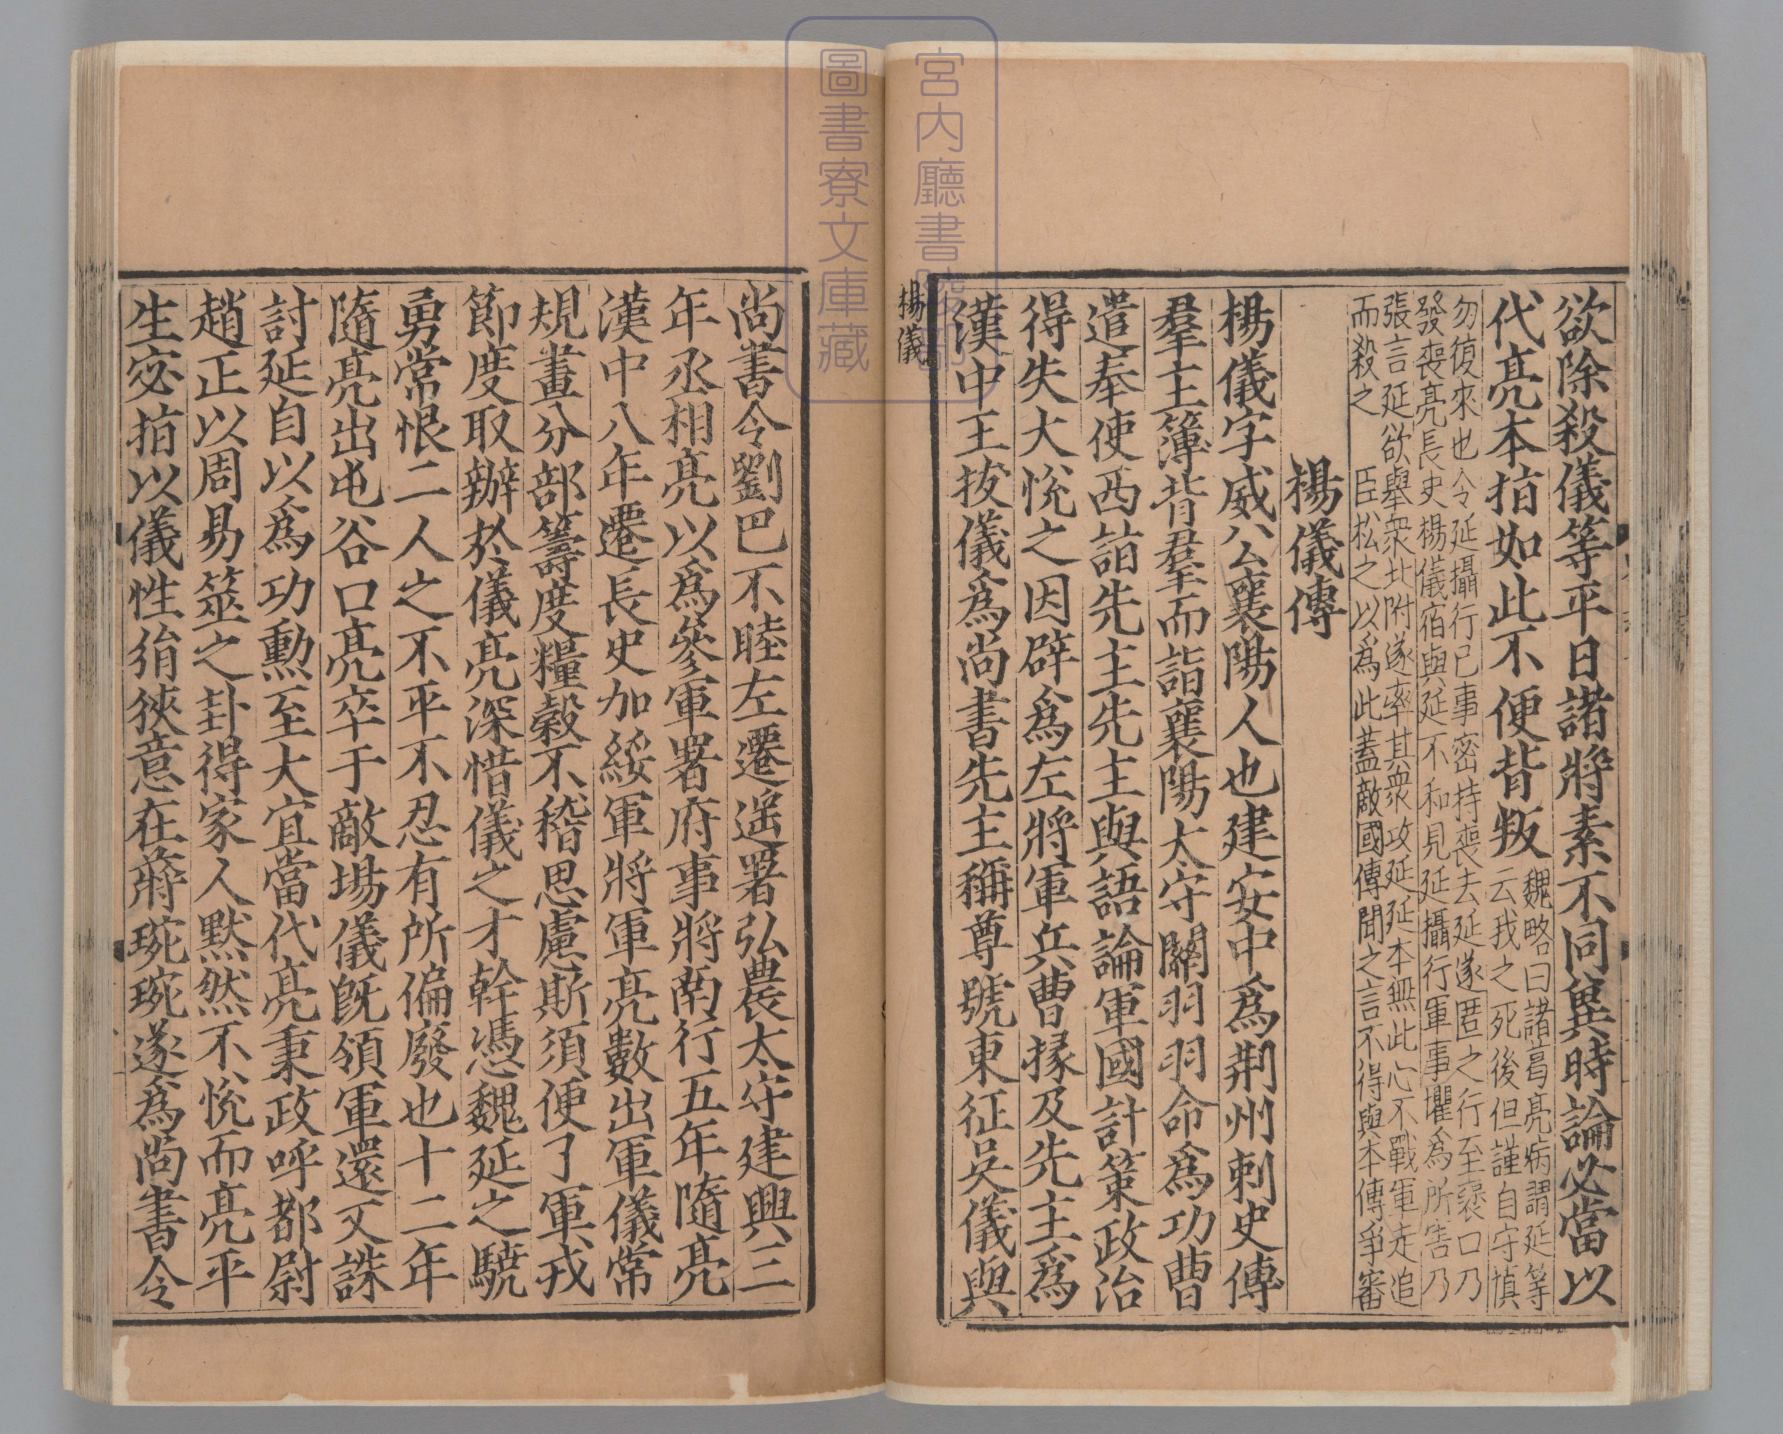 欲除殺儀等平日諸將素不同異時論必當以
代亮本指如此不便背叛魏略曰諸葛亮病謂延等
云我之死後但謹自守愼
勿復來也令延攝行已事密持喪去延遂匿之行至襃口乃
發喪亮長史楊儀宿與延不和見延攝行軍事懼爲所害乃
張言延欲舉衆北附遂率其衆攻延延本無此心不戰軍走追
而殺之 臣松之以爲此蓋敵國傳聞之言不得與本傳爭審
楊儀傳
楊儀字威公襄陽人也建安中爲荆州刺史傅
羣主簿背羣而詣襄陽太守關羽羽命爲功曹
遣奉使西詣先主先主與語論軍國計策政治
得失大悅之因辟爲左將軍兵曹掾及先主爲
漢中王拔儀爲尚書先主稱尊號東征吳儀與
楊儀
尚書令劉巴不睦左遷遥署弘農太守建興三
年丞相亮以爲參軍署府事將南行五年隨亮
漢中八年遷長史加綏軍將軍亮數出軍儀常
規畫分部籌度糧穀不稽思慮斯須便了軍戎
節度取辦於儀亮深惜儀之才幹憑魏延之驍
勇常恨二人之不平不忍有所偏廢也十二年
隨亮出屯谷口亮卒于敵場儀旣領軍還又誅
討延自以爲功勳至大宜當代亮秉政呼都尉
趙正以周易筮之卦得家人默然不悅而亮平
生宓指以儀性狷狹意在蔣琬琬遂爲尚書令
宮内廳書陵部
圖書寮文庫藏